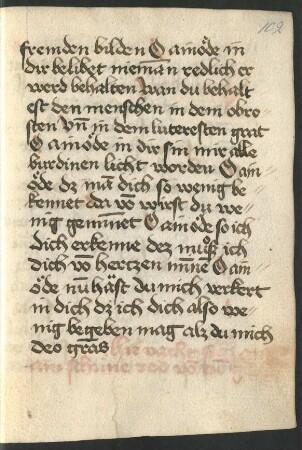 102
fremden bilden O amöde in
dir belibet nieman redlich er
werd behalten wan du behalt
est den menschen in dem obro
sten vn̄ in dem lutersten grat
O amöde in dir sin mir alle
burdinen licht worden O am
öde dz mā dich so wenig be
kennet da vō wirst du we
nig geminnet O amöde so ich
dich erkenne dez muͦss ich
dich vō hertzen minne O am
öde nu hāst du mich verkert
in dich dz ich dich also we
nig begeben mag alz du mich
deo grās